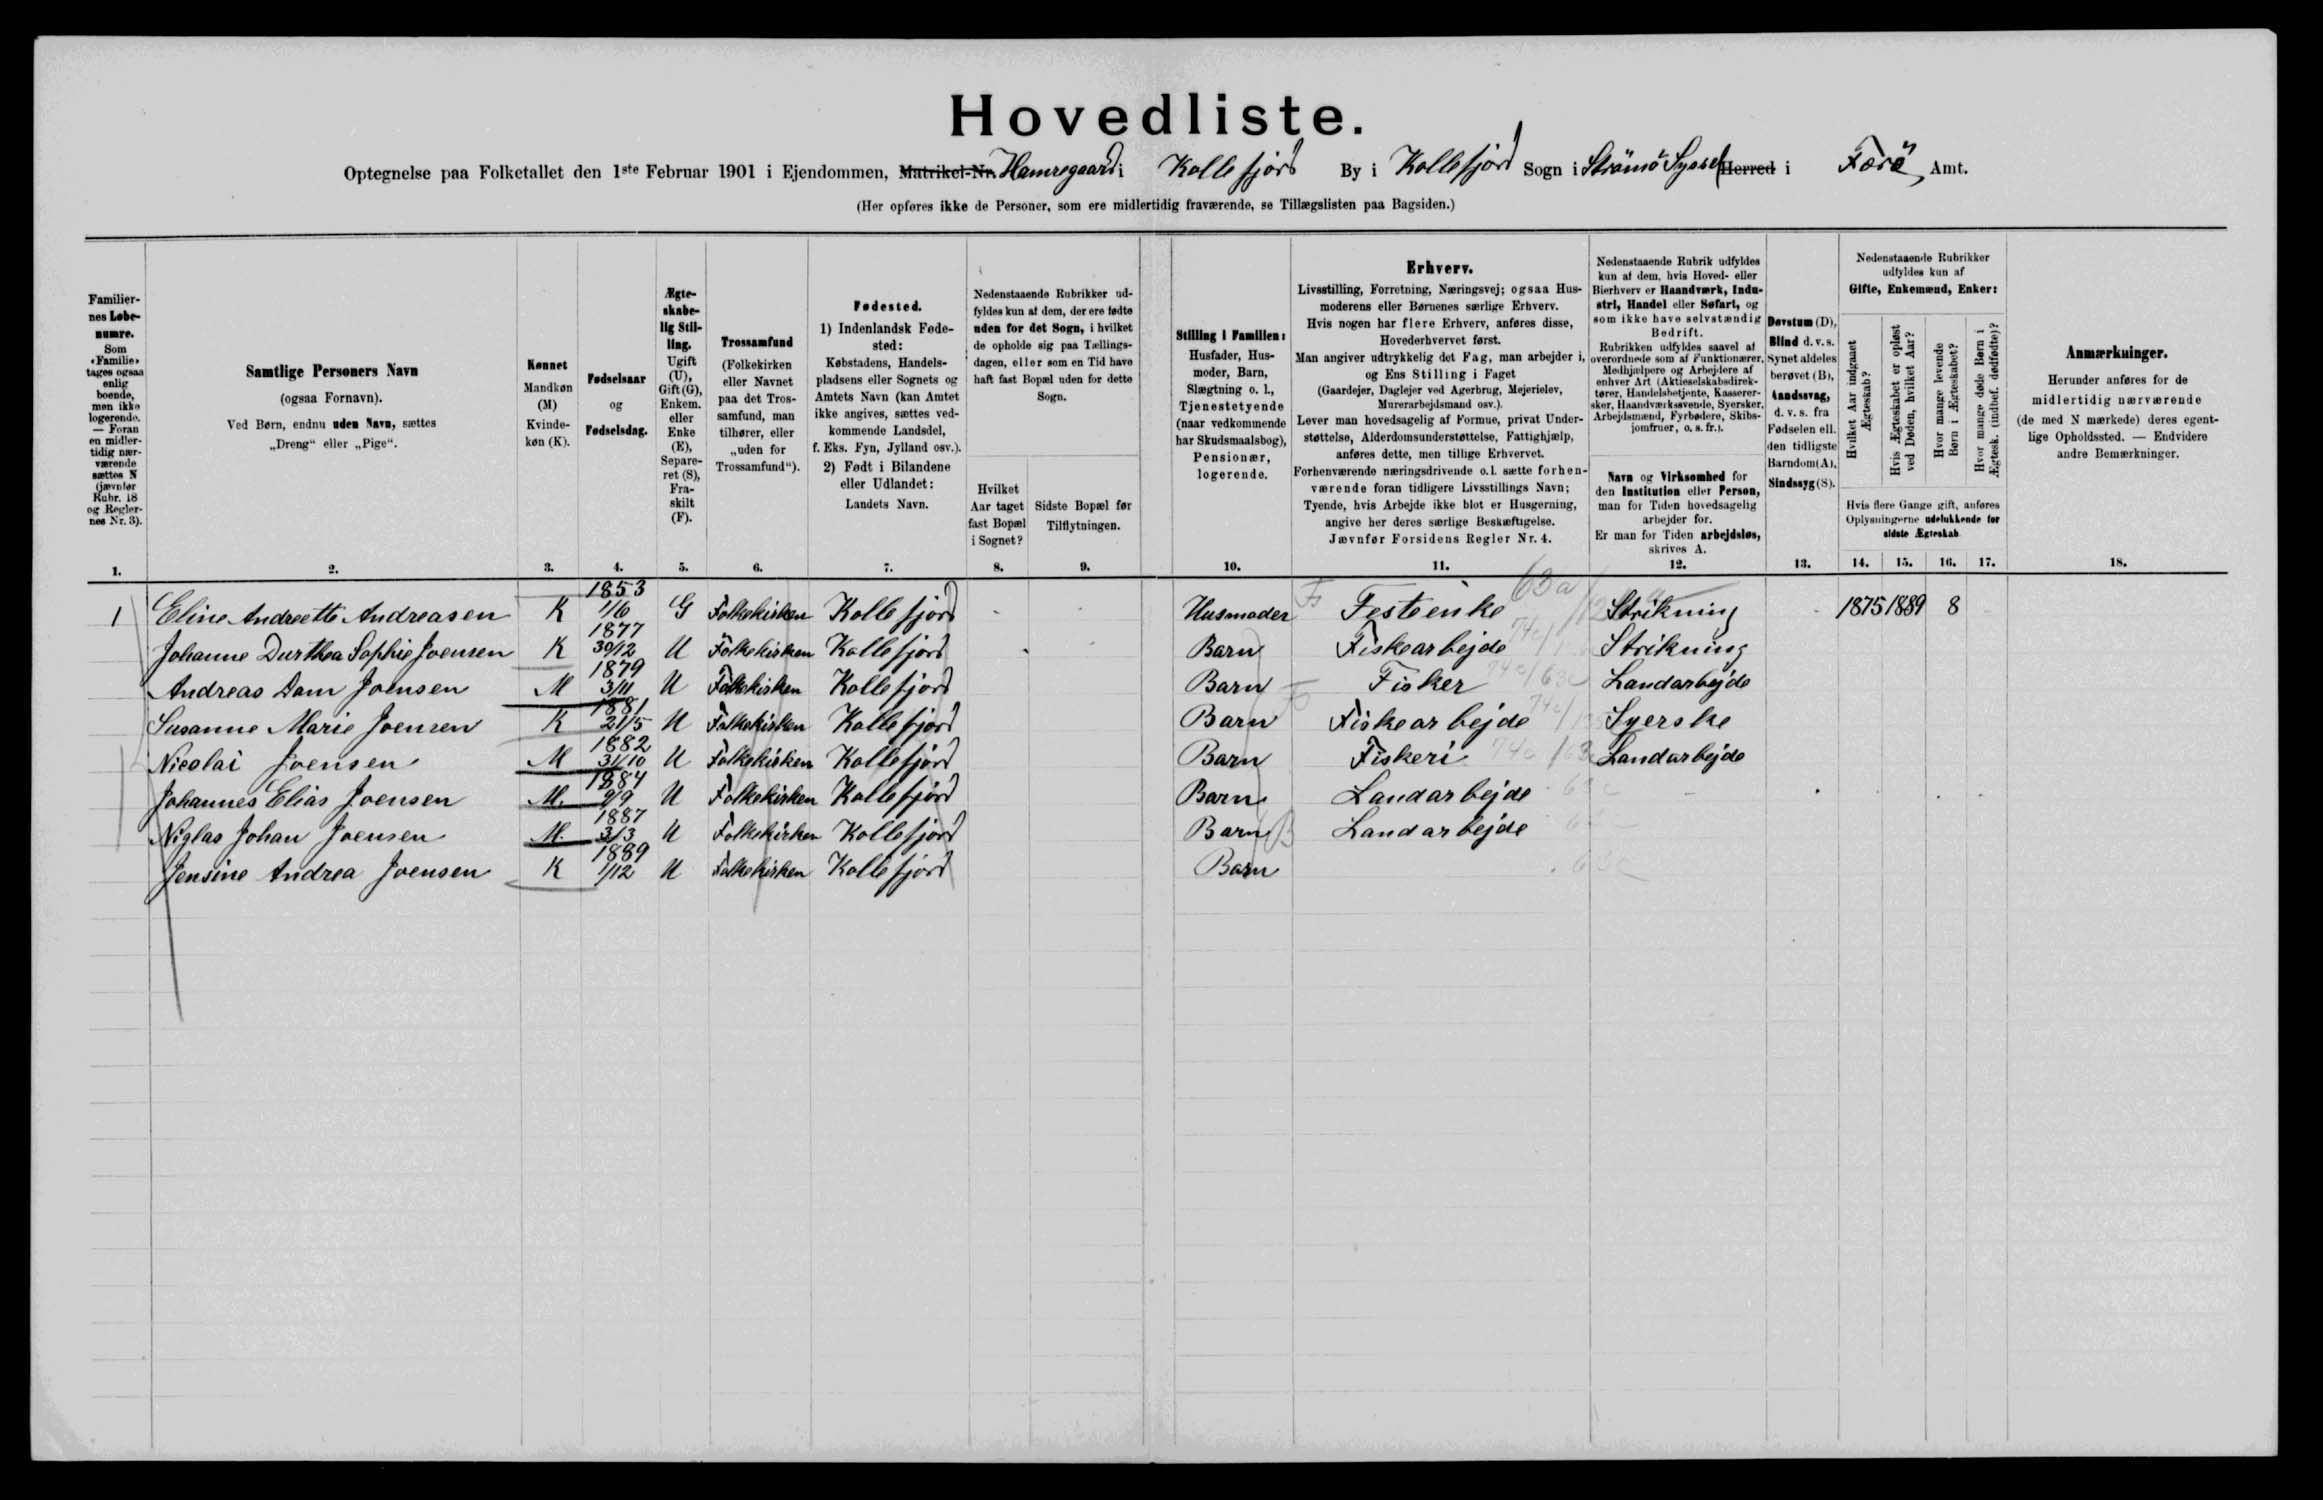 Hovedliste.
Optegnelse paa Folketallet den 1ste Februar 1901 i Ejendommen, Matrikel-Nr. Hamregaard i Kollefjord By i Kollefjord Sogn i Strömö Syssel Herred i Færö, Amt.
(Her opføres ikke de Personer, som ere midlertidig fraværende, se Tillægslisten paa Bagsiden.)
Familier-
nes Løbe-
numre.
Som
«Familie»
tages ogsaa
enlig
boende,
men ikke
logerende.
— Foran
en midler-
tidig nær-
værende
sættes N
(jævnfør
Rubr. 18
og Regler-
nes Nr. 3).
Samtlige Personers Navn
(ogsaa Fornavn).
Ved Børn, endnu uden Navn, sættes
„Dreng“ eller „Pige“.
Kønnet
Mandkøn
(M)
Kvinde-
køn (K).
Fødselsaar
og
Fødselsdag.
Ægte-
skabe-
lig Stil-
ling.
Ugift
(U),
Gift (G),
Enkem.
eller
Enke
(E),
Separe-
ret (S),
Fra-
skilt
(F).
Trossamfund
(Folkekirken
eller Navnet
paa det Tros-
samfund, man
tilhører, eller
„uden for
Trossamfund“).
Fødested.
1) Indenlandsk Føde-
sted:
Købstadens, Handels-
pladsens eller Sognets og
Amtets Navn (kan Amtet
ikke angives, sættes ved-
kommende Landsdel,
f. Eks. Fyn, Jylland osv.).
2) Født i Bilandene
eller Udlandet:
Landets Navn.
Nedenstaaende Rubrikker ud-
fyldes kun af dem, der ere fødte
uden for det Sogn, i hvilket
de opholde sig paa Tællings-
dagen, eller som en Tid have
haft fast Bopæl uden for dette
Sogn.
Hvilket
Aar taget
fast Bopæl
i Sognet?
Sidste Bopæl før
Tilflytningen.
Stilling i Familien:
Husfader, Hus-
moder, Barn,
Slægtning o. l.,
Tjenestetyende
(naar vedkommende
har Skudsmaalsbog),
Pensionær,
logerende.
Erhverv.
Livsstilling, Forretning, Næringsvej; ogsaa Hus-
moderens eller Børnenes særlige Erhverv.
Hvis nogen har flere Erhverv, anføres disse,
Hovederhvervet først.
Man angiver udtrykkelig det Fag, man arbejder i,
og Ens Stilling i Faget
(Gaardejer, Daglejer ved Agerbrug, Mejerielev,
Murerarbejdsmand osv.).
Lever man hovedsagelig af Formue, privat Under-
støttelse, Alderdomsunderstøttelse, Fattighjælp,
anføres dette, men tillige Erhvervet.
Forhenværende næringsdrivende o. l. sætte forhen-
værende foran tidligere Livsstillings Navn;
Tyende, hvis Arbejde ikke blot er Husgerning,
angive her deres særlige Beskæftigelse.
Jævnfør Forsidens Regler Nr. 4.
Nedenstaaende Rubrik udfyldes
kun af dem, hvis Hoved- eller
Bierhverv er Haandværk, Indu-
stri, Handel eller Søfart, og
som ikke have selvstændig
Bedrift.
Rubrikken udfyldes saavel af
overordnede som af Funktionærer,
Medhjælpere og Arbejdere af
enhver Art (Aktieselskabsdirek-
tører, Handelsbetjente, Kasserer-
sker, Haandværkssvende, Syersker,
Arbejdsmænd, Fyrbødere, Skibs-
jomfruer, o. s. fr.).
Navn og Virksomhed for
den Institution eller Person,
man for Tiden hovedsagelig
arbejder for.
Er man for Tiden arbejdsløs,
skrives A.
Døvstum (D),
Blind d. v. s.
Synet aldeles
berøvet (B),
Aandssvag,
d. v. s. fra
Fødselen ell.
den tidligste
Barndom (A),
Sindssyg (S).
Nedenstaaende Rubrikker
udfyldes kun af
Gifte, Enkemænd, Enker:
Hvilket Aar indgaaet
Ægteskab?
Hvis Ægteskabet er opløst
ved Døden, hvilket Aar?
Hvor mange levende
Børn i Ægteskabet?
Hvor mange døde Børn i
Ægtesk. (indbef. dødfødte)?
Hvis flere Gange gift, anføres
Oplysningerne udelukkende for
sidste Ægteskab.
Anmærkninger.
Herunder anføres for de
midlertidig nærværende
(de med N mærkede) deres egent-
lige Opholdssted. — Endvidere
andre Bemærkninger.
1. 2. 3. 4. 5. 6. 7. 8. 9. 10. 11. 12. 13. 14. 15. 16. 17. 18.
1 Eline Andreette Andreasen K 1853 1/6 G Folkekirken Kollefjord Husmoder Festeenke 63a Strikning 1875 1889 8
Johanne Durthea Sophie Joensen K 1877 30/12 U Folkekirken Kollefjord Barn Fiskearbejde Strikning
Andreas Dam Joensen M 1879 3/11 U Folkekirken Kollefjord Barn Fisker Landarbejde
Susanne Marie Joensen K 1881 21/5 U Folkekirken Kollefjord Barn Fiskearbejde Syerske
Nicolai Joensen M 1882 31/10 U Folkekirken Kollefjord Barn Fiskeri Landarbejde
Johannes Elias Joensen M. 1884 9/9 U Folkekirken Kollefjord Barn Landarbejde
Niglas Johan Joensen M. 1887 3/3 U Folkekirken Kollefjord Barn Landarbejde
Jensine Andrea Joensen K 1889 1/12 U Folkekirken Kollefjord Barn